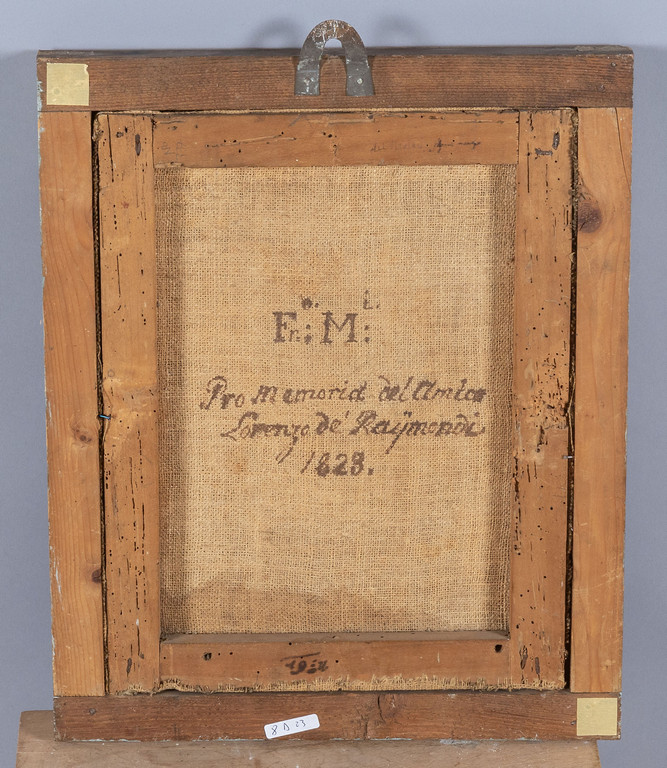 o. i.
Fn.: M:
Pro Memoria del' Amico
Lorenzo de' Raÿmondi
1823.
8 D 23